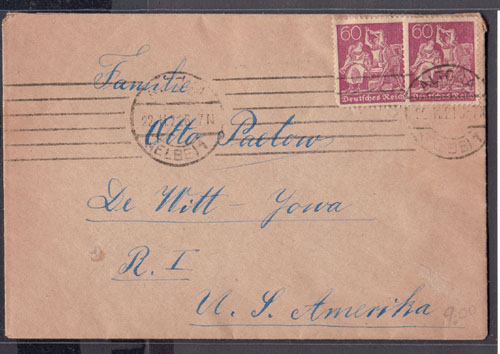 60 60
Deutsches Reich Deutsches Reich
Familie
Otto Paetow
(ELBE) 1
De Witt - Iowa
R. I
U. S. Amerika
9.00